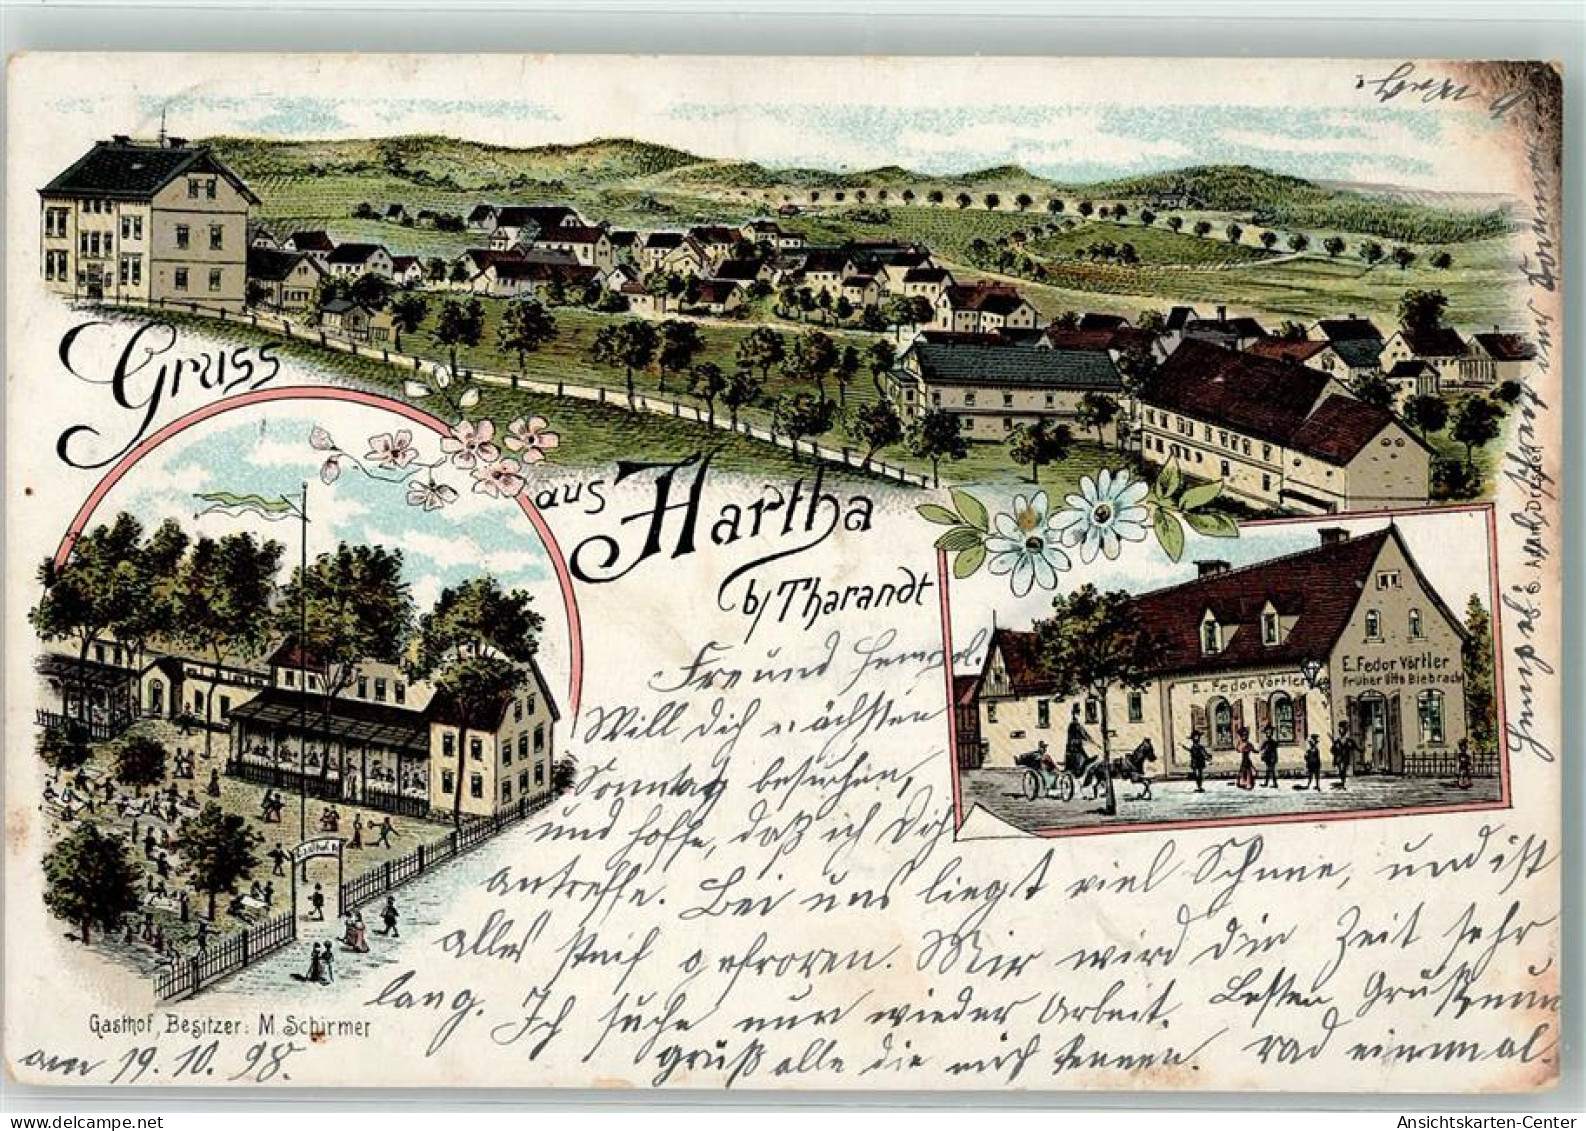 Gruss
aus
Hartha
b/ Tharandt
E. Fedor Vörtler
früher Otto Biebrach
E. Fedor Vörtler
Gasthof, Besitzer: M. Schirmer
am 19. 10. 98.
Freund Hempel.
Will dich nächsten
Sonntag besuchen,
und hoffe, daß ich Dich
antreffe. Bei uns liegt viel Schnee, und ist
alles steif gefroren. Mir wird die Zeit sehr
lang. Ich suche nur wieder Arbeit. Besten Gruß
grüß alle die mich kennen.
einmal.
Dresden
Ansichtskarten-Center